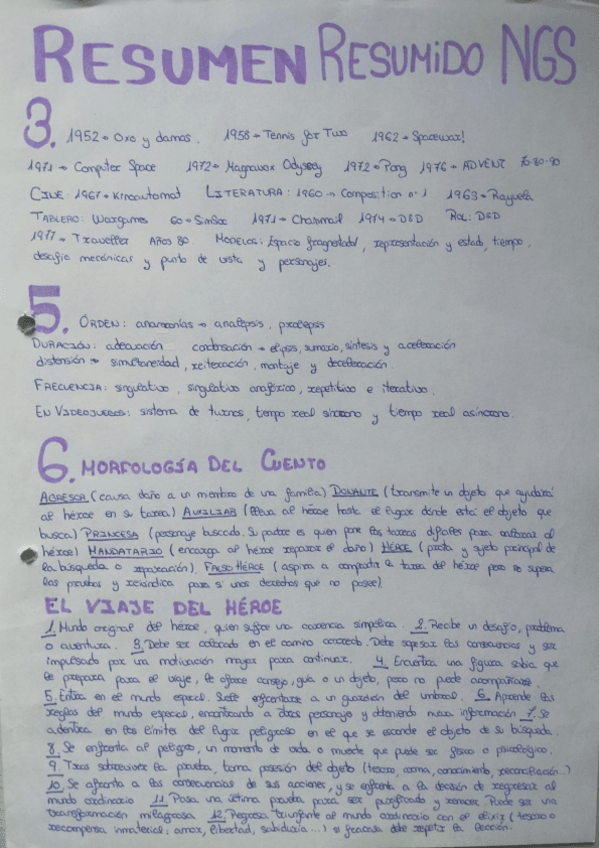 RESUMEN RESUMIDO NGS
3. 1952 → Oxo y damas. 1958 → Tennis for Two 1962 → Spacewar!
1971 → Computer Space 1972 → Magnavox Odyssey 1972 → Pong 1976 → ADVENT 70-80-90
CINE: 1967 → Kinoautomat LITERATURA: 1960 → Composition nº 1 1963 → Rayuela
TABLERO: Wargames 60 → SimSoc 1971 → Chainmail 1974 → D&D ROL: D&D
1977 → Traveller AÑOS 80. MODELOS: Espacio fragmentado, representación y estado, tiempo,
desafío mecánicas y punto de vista y personajes.
5. ORDEN: anacronías → analepsis, prolepsis
DURACIÓN: adecuación condensación → elipsis, sumario, síntesis y aceleración
distensión → simultaneidad, reiteración, montaje y deceleración.
FRECUENCIA: singulativo, singulativo anafórico, repetitivo e iterativo.
EN VIDEOJUEGOS: sistema de turnos, tiempo real síncrono y tiempo real asíncrono.
6. MORFOLOGÍA DEL CUENTO
AGRESOR (causa daño a un miembro de una familia) DONANTE (transmite un objeto que ayudará
al héroe en su tarea) AUXILIAR (lleva al héroe hasta el lugar dónde está el objeto que
busca) PRINCESA (personaje buscado. Su padre es quien pone las tareas difíciles para
al héroe) MANDATARIO (encarga al héroe reparar el daño) HÉROE (prota y sujeto principal de
la búsqueda o reparación). FALSO HÉROE (aspira a compartir la tarea del héroe pero no supera
las pruebas y reivindica para sí unos derechos que no posee).
EL VIAJE DEL HÉROE
1. Mundo original del héroe, quien sufre una carencia simbólica. 2. Recibe un desafío, problema
o aventura. 3. Debe ser colocado en el camino correcto. Debe sopesar las consecuencias y ser
impulsado por una motivación mayor para continuar. 4. Encuentra una figura sabia que
le prepara para el viaje, le ofrece consejo, guía o un objeto, pero no puede acompañarle.
5. Entra en el mundo especial. Suele enfrentarse a un guardián del umbral. 6. Aprende las
reglas del mundo especial, encontrando a otros personajes y obteniendo nueva información 7. Se
adentra en los límites del lugar peligroso en el que se esconde el objeto de su búsqueda.
8. Se enfrenta al peligro, un momento de vida o muerte que puede ser físico o psicológico.
9. Tras sobrevivir la prueba, toma posesión del objeto (tesoro, arma, conocimiento, reconciliación...)
10. Se enfrenta a las consecuencias de sus acciones, y se enfrenta a la decisión de regresar al
mundo ordinario 11. Pasa una última prueba para ser purificado y renacer. Puede ser una
transformación milagrosa 12. Regresa triunfante al mundo ordinario con el elixir (tesoro o
recompensa inmaterial: amor, libertad, sabiduría...) si fracasa debe repetir la lección.